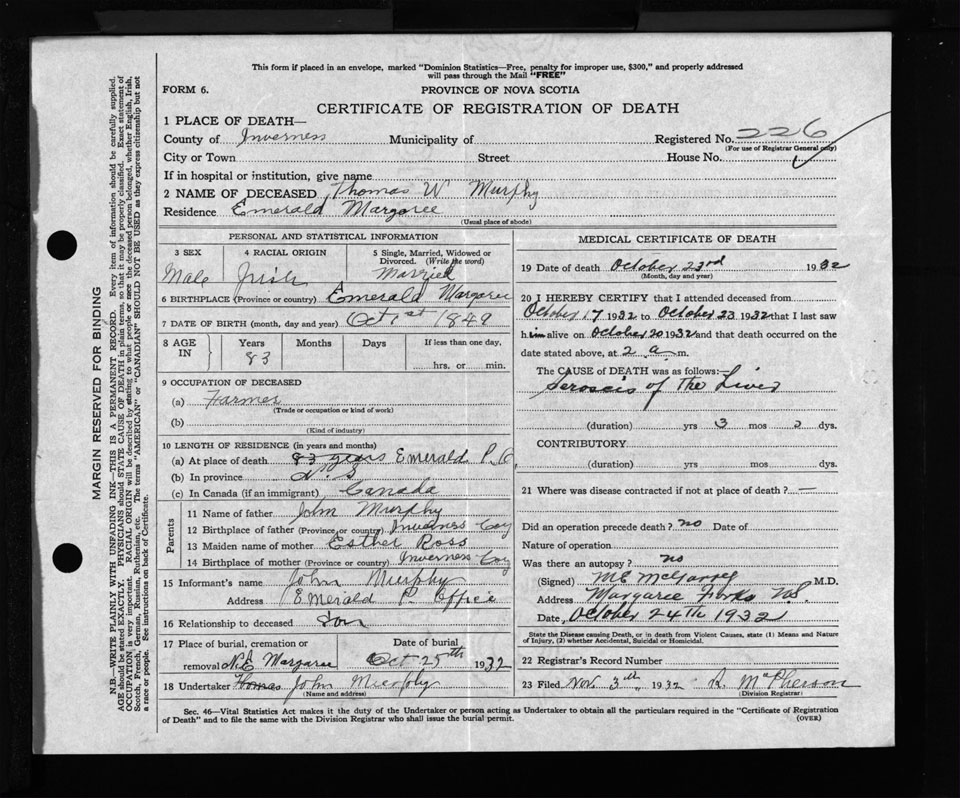 This form if placed in an envelope, marked "Dominion Statistics—Free, penalty for improper use, $300," and properly addressed
will pass through the Mail "FREE"
FORM 6. PROVINCE OF NOVA SCOTIA
CERTIFICATE OF REGISTRATION OF DEATH
1 PLACE OF DEATH—
County of Inverness Municipality of Registered No. 226
(For use of Registrar General only)
City or Town Street House No.
If in hospital or institution, give name
2 NAME OF DECEASED Thomas W Murphy
Residence Emerald Margaree
(Usual place of abode)
PERSONAL AND STATISTICAL INFORMATION
3 SEX 4 RACIAL ORIGIN 5 Single, Married, Widowed or
Divorced. (Write the word)
Male Irish Married
6 BIRTHPLACE (Province or country) Emerald Margaree
7 DATE OF BIRTH (month, day and year) Oct 1st 1849
8 AGE IN Years Months Days If less than one day,
83 hrs. or min.
9 OCCUPATION OF DECEASED
(a) Farmer
(Trade or occupation or kind of work)
(b)
(Kind of industry)
10 LENGTH OF RESIDENCE (in years and months)
(a) At place of death 83 years Emerald P. O.
(b) In province N S
(c) In Canada (if an immigrant) Canada
Parents
11 Name of father John Murphy
12 Birthplace of father (Province or country) Inverness Coy
13 Maiden name of mother Esther Ross
14 Birthplace of mother (Province or country) Inverness Coy
15 Informant's name John Murphy
Address Emerald P. Office
16 Relationship to deceased Son
17 Place of burial, cremation or Date of burial
removal N.E Margaree Oct 25th 1932
18 Undertaker Thomas John Murphy
(Name and address)
MEDICAL CERTIFICATE OF DEATH
19 Date of death October 23rd 1932
(Month, day and year)
20 I HEREBY CERTIFY that I attended deceased from
October 17 1932 to October 23 1932 that I last saw
him alive on October 20 1932 and that death occurred on the
date stated above, at 2 a. m.
The CAUSE of DEATH was as follows:—
Seroscis of The Liver
(duration) yrs 3 mos 2 dys.
CONTRIBUTORY
(duration) yrs mos dys.
21 Where was disease contracted if not at place of death? —
Did an operation precede death? no Date of
Nature of operation
Was there an autopsy? no
(Signed) M.D.
Address Margaree Forks N.S.
Date, October 24th 1932
State the Disease causing Death, or in death from Violent Causes, state (1) Means and Nature
of Injury, (2) whether Accidental, Suicidal or Homicidal.
22 Registrar's Record Number
23 Filed Nov. 3rd 1932 R. McPherson
(Division Registrar)
Sec. 46—Vital Statistics Act makes it the duty of the Undertaker or person acting as Undertaker to obtain all the particulars required in the "Certificate of Registration
of Death" and to file the same with the Division Registrar who shall issue the burial permit. (OVER)
MARGIN RESERVED FOR BINDING
N.B.—WRITE PLAINLY WITH UNFADING INK—THIS IS A PERMANENT RECORD. Every item of information should be carefully supplied.
AGE should be stated EXACTLY. PHYSICIANS should STATE CAUSE OF DEATH in plain terms, so that it may be properly classified. Exact statement of
OCCUPATION is very important. RACIAL ORIGIN will be described by stating what people or race the deceased person belonged, whether English, Irish,
Scotch, French, German, Russian, Ruthenian, etc. The terms "AMERICAN" or "CANADIAN" SHOULD NOT BE USED as they express citizenship but not
a race or people. See instructions on back of Certificate.